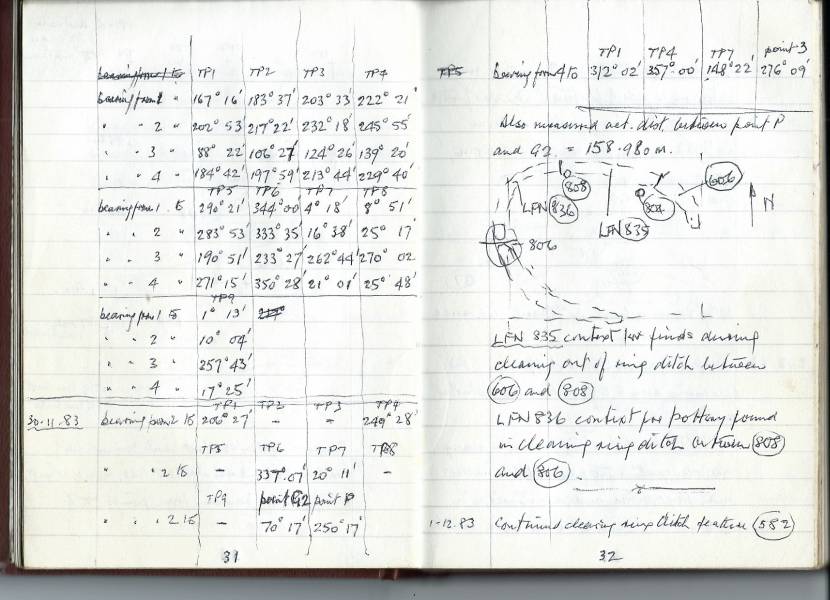 TP1 TP2 TP3 TP4
bearing from 1 " 167° 16' 183° 37' 203° 33' 222° 21'
" " 2 " 202° 53' 217° 22' 232° 18' 245° 55'
" " 3 " 88° 22' 106° 27' 124° 26' 139° 20'
" " 4 " 184° 42' 197° 59' 213° 44' 229° 40'
TP5 TP6 TP7 TP8
bearing from 1 to 290° 21' 344° 00' 4° 18' 8° 51'
" " 2 " 283° 53' 333° 35' 16° 38' 25° 17'
" " 3 " 190° 51' 233° 27' 262° 44' 270° 02
" " 4 " 271° 15' 350° 28' 21° 01' 25° 48'
TP9
bearing from 1 to 1° 13'
" " 2 " 10° 04'
" " 3 " 257° 43'
" " 4 " 17° 25'
TP1 TP2 TP3 TP4
30-11-83 bearing from 2 to 206° 27' - - 249° 28'
TP5 TP6 TP7 TP8
" " 2 to - 337° 07' 20° 11' -
TP9 point G2 point P
" " 2 to - 70° 17' 250° 17'
31
TP1 TP4 TP7 point 3
TP5 bearing from 4 to 312° 02' 357° 00' 148° 22' 276° 09'
Also measured act. dist. between point P
and G2 = 158.980m.
808
606
LFN 836
804
N
LFN 835
806
LFN 835 context for finds during
cleaning out of ring ditch between
606 and 808
LFN 836 context for pottery found
in cleaning ring ditch between 808
and 806.
1-12.83 Continued cleaning ring ditch feature 582
32